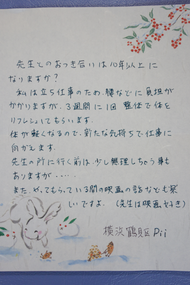 先生とのおつき合いは10年以上に
なりますか？
私は立ち仕事のため、腰などに負担が
かかりますが、3週間に1回 整体で体を
リフレッシュしてもらいます。
体が軽くなるので、新たな気持ちで仕事に
向かえます。
先生の所に行く前は、少し無理しちゃう事も
ありますが……
また、やってもらっている間の映画の話なども楽
しいですよ。（先生は映画好き）
横浜鶴見区 P.i.i